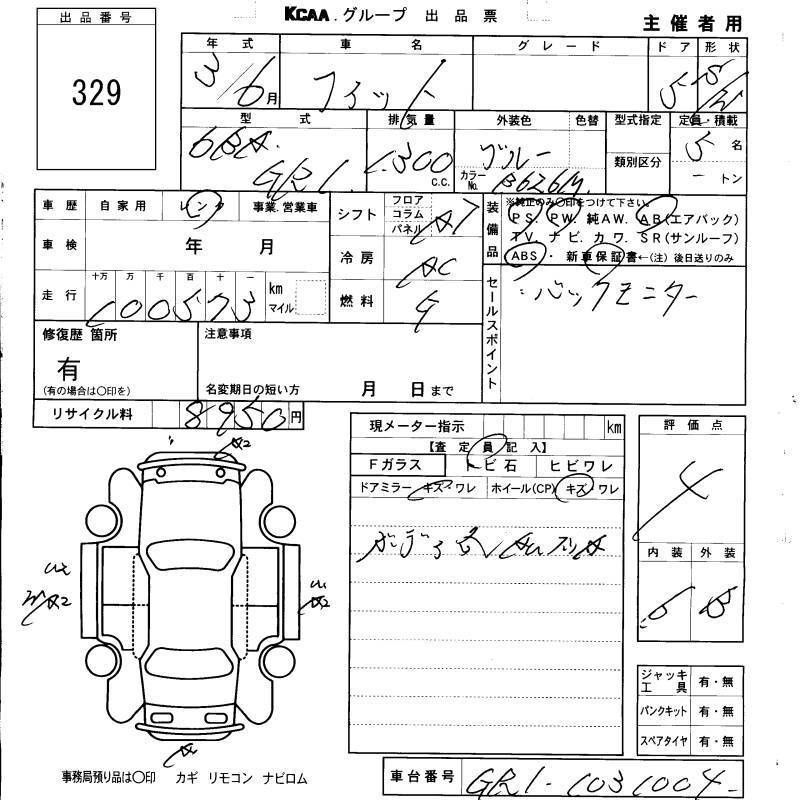 KCAA.グループ 出品票
主催者用
出品番号
329
年式 車名 グレード ドア 形状
3/6月 フィット 5 S/W
型式 排気量 外装色 色替 型式指定 定員・積載
6BA. GR1 1,300 c.c. ブルー カラーNo. B626M 類別区分 5名
ートン
車歴 自家用 レンタ 事業.営業車
シフト フロア コラム パネル AT
装備品 ※純正のみ〇印をつけて下さい。
PS. PW. 純AW. AB(エアバック)
TV. ナビ. カワ. SR(サンルーフ)
ABS・新車保証書←(注)後日送りのみ
車検 年 月
冷房 AC
走行 十万 万 千 百 十 一 km マイル
100573
燃料
セールスポイント
バックモニター
修復歴 箇所
有
(有の場合は〇印を)
注意事項
名変期日の短い方 月 日まで
リサイクル料 8950円
現メーター指示 km
【査定員記入】
Fガラス トビ石 ヒビワレ
ドアミラー キズ・ワレ ホイール(CP) キズ ワレ
評価点
4
内装 外装
B
A2
A2
A2
A
ジャッキ工具 有・無
パンクキット 有・無
スペアタイヤ 有・無
事務局預り品は〇印 カギ リモコン ナビロム
車台番号 GR1-1031004